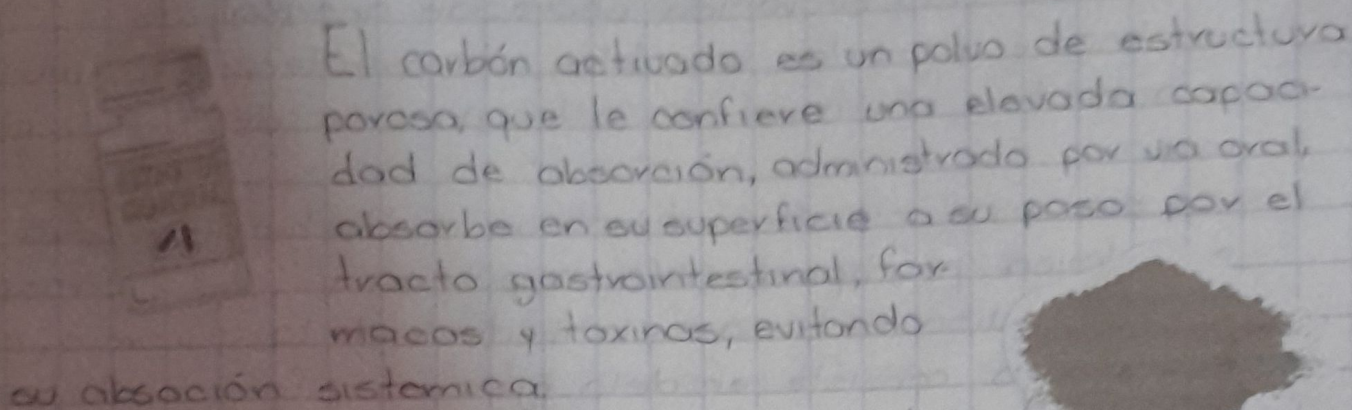 El carbón activado es un polvo de estructura
porosa, que le confiere una elevada capaci-
dad de absorción, administrado por via oral,
absorbe en su superficie a su paso por el
tracto gastrointestinal, for-
macos y toxinas, evitando
su absoción sistemica.